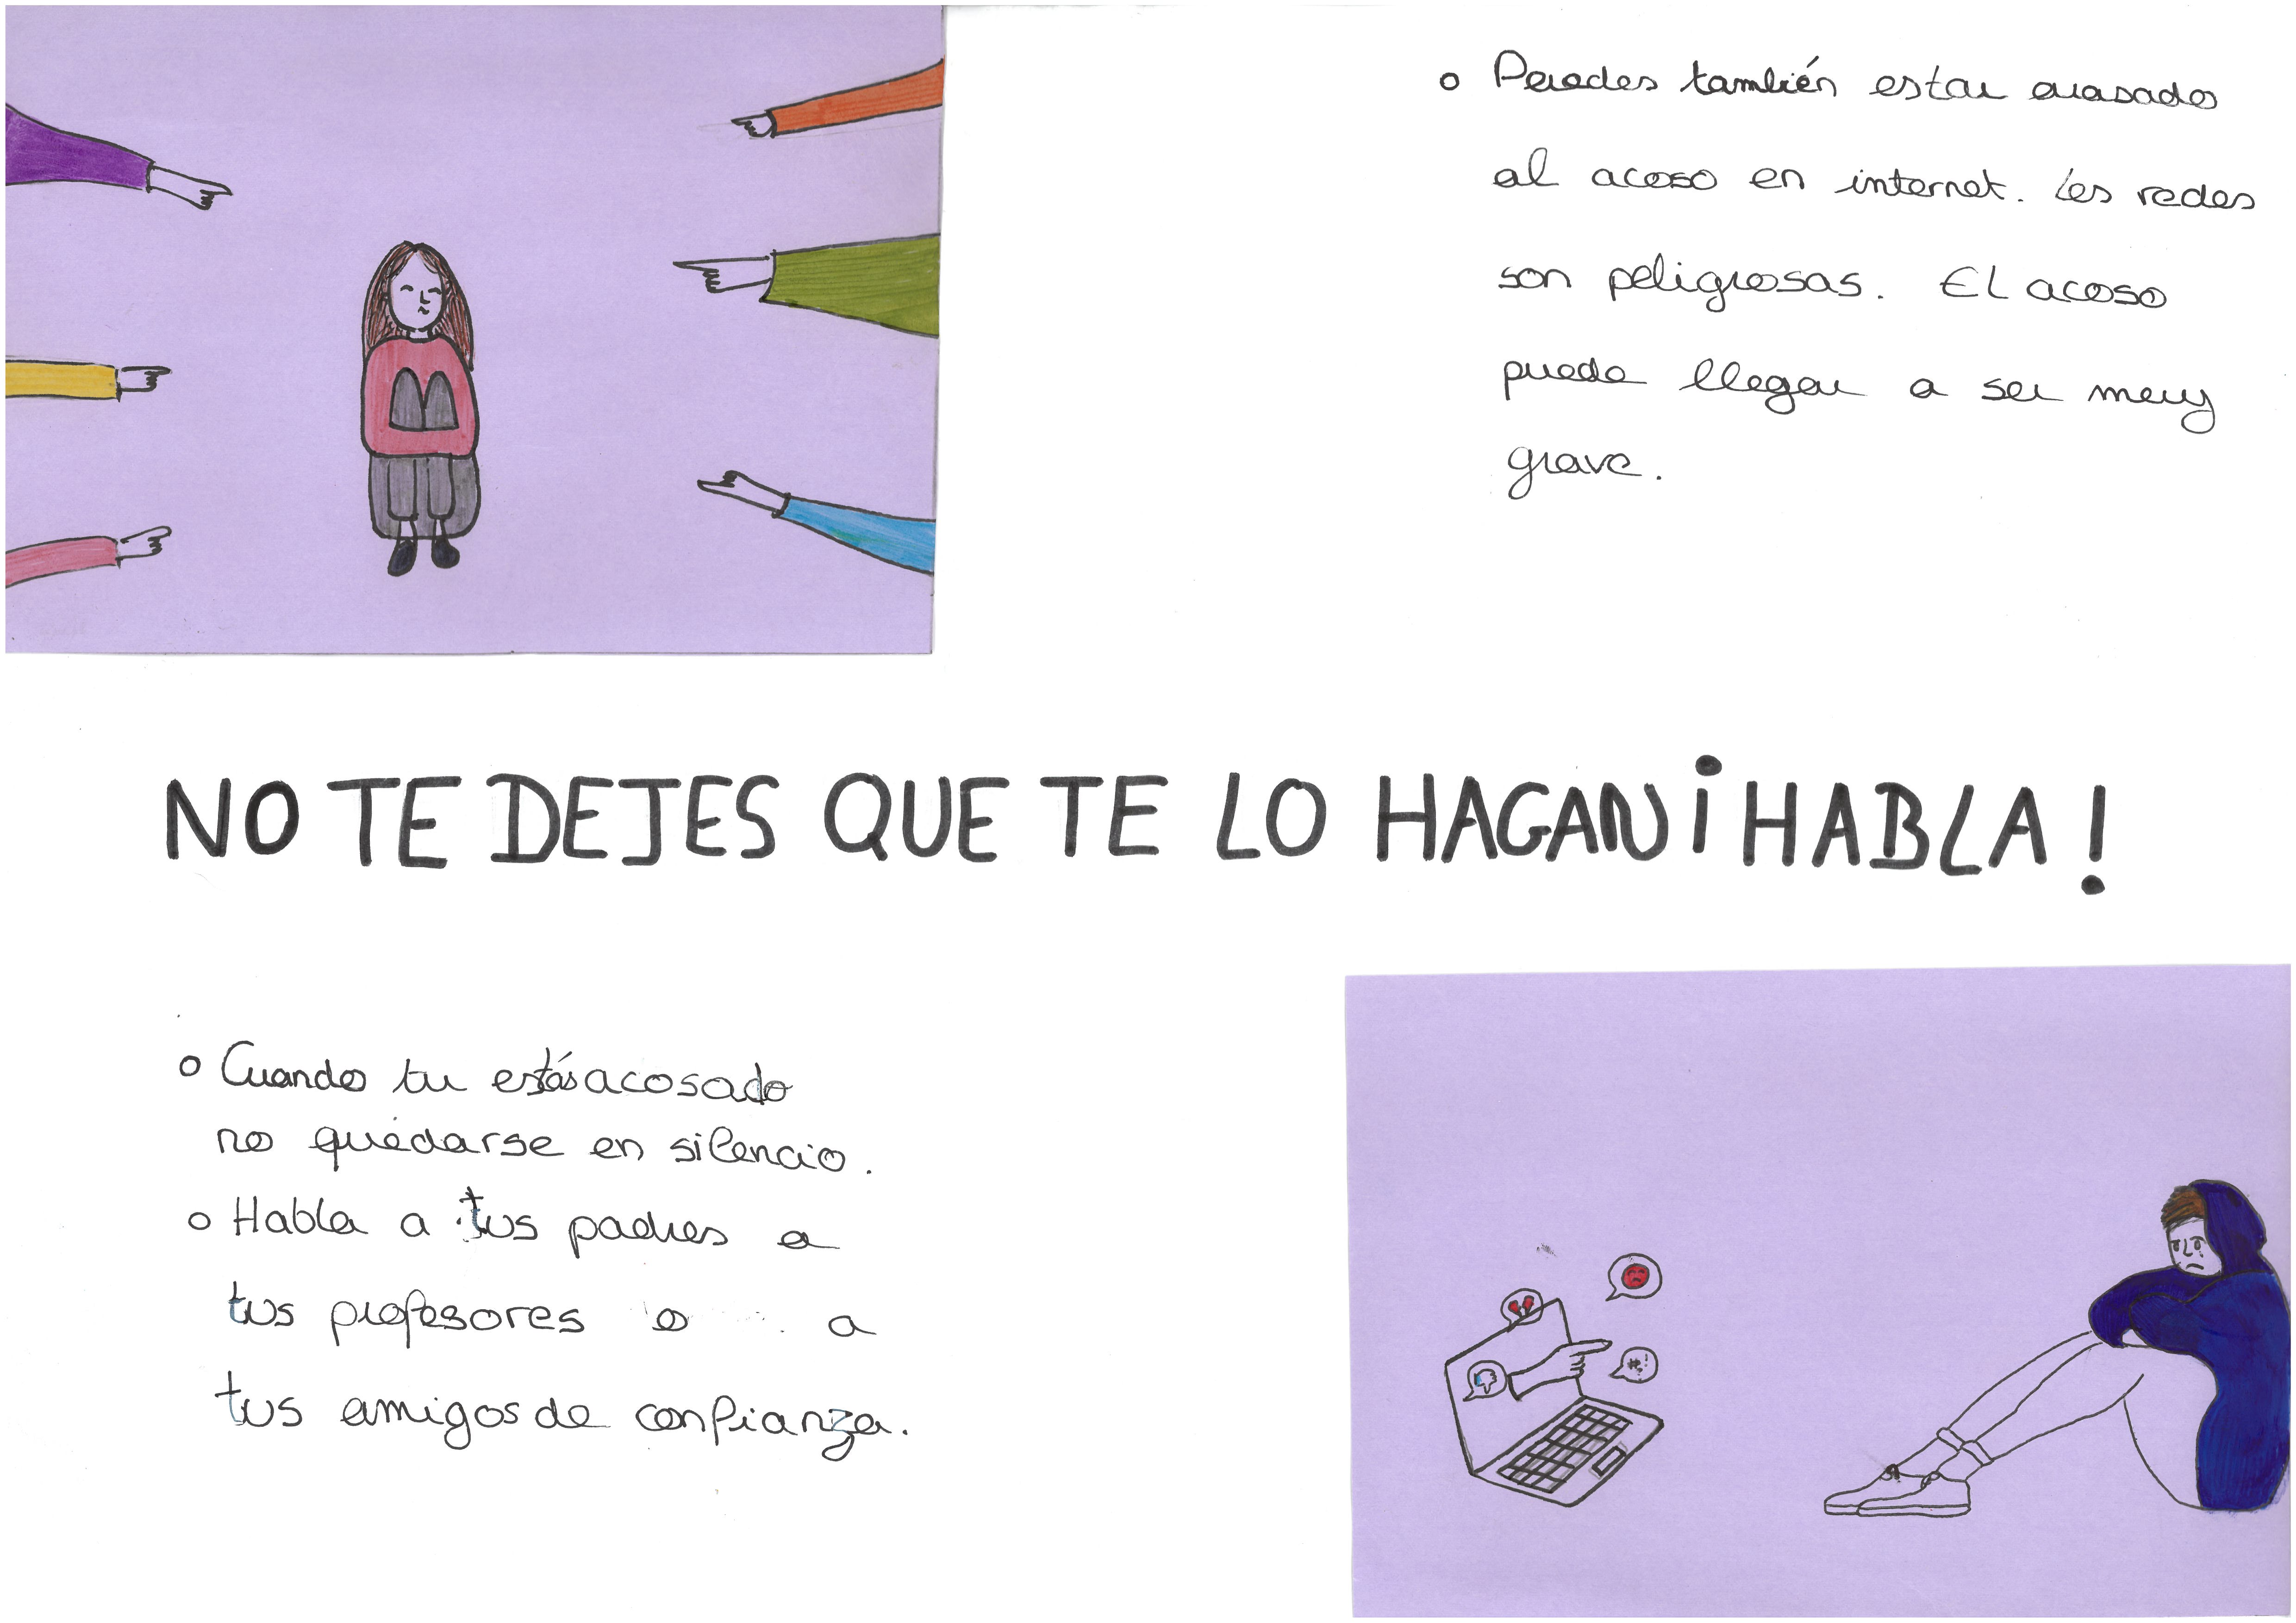 o Puedes también estar acasado
al acoso en internet. Les redes
son peligrosas. El acoso
puede llegar a ser muy
grave.
NO TE DEJES QUE TE LO HAGAN ¡HABLA!
o Cuando tu estás acosado
no quedarse en silencio.
o Habla a tus padres a
tus profesores o a
tus amigos de confianza.